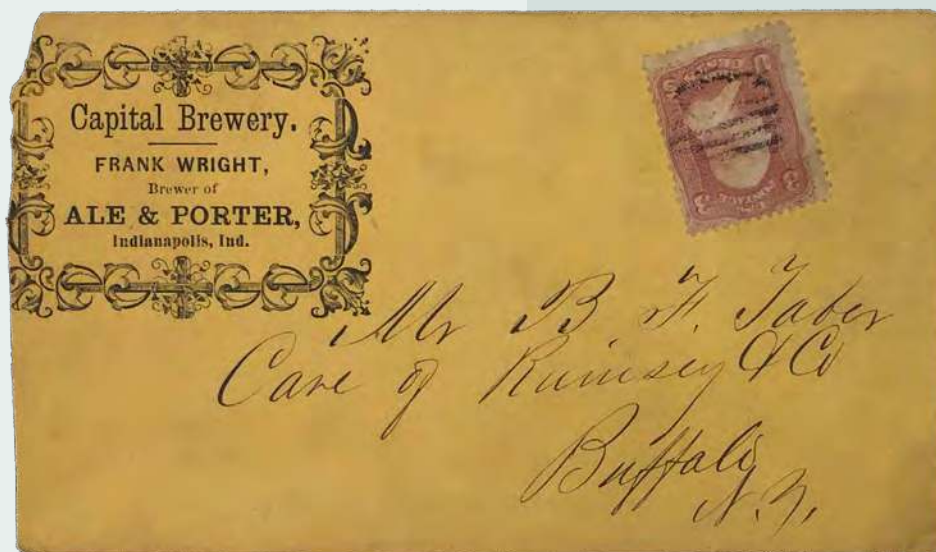 Capital Brewery.
FRANK WRIGHT,
Brewer of
ALE & PORTER,
Indianapolis, Ind.
3 3
POSTAGE
Mr B. F. Taber
Care of Rumsey & Co
Buffalo
N.Y.